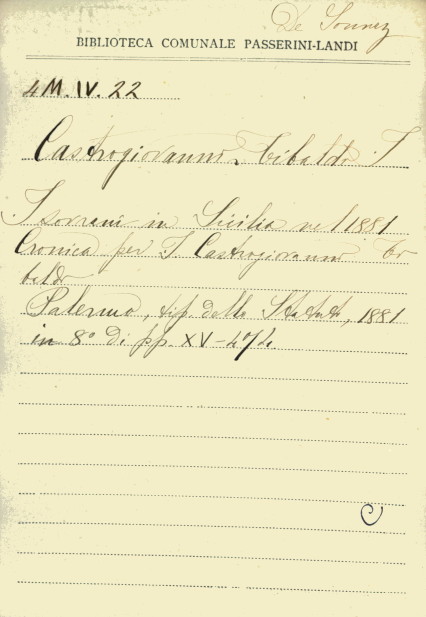 De
BIBLIOTECA COMUNALE PASSERINI-LANDI
4M.IV.22
Castrogiovanni Tibaldo I
I sovrani in Sicilia nel 1881
Cronica per I. Castrogiovanni Ti
baldo
Palermo, tip. dello Statuto, 1881
in 8° di pp. XV-472